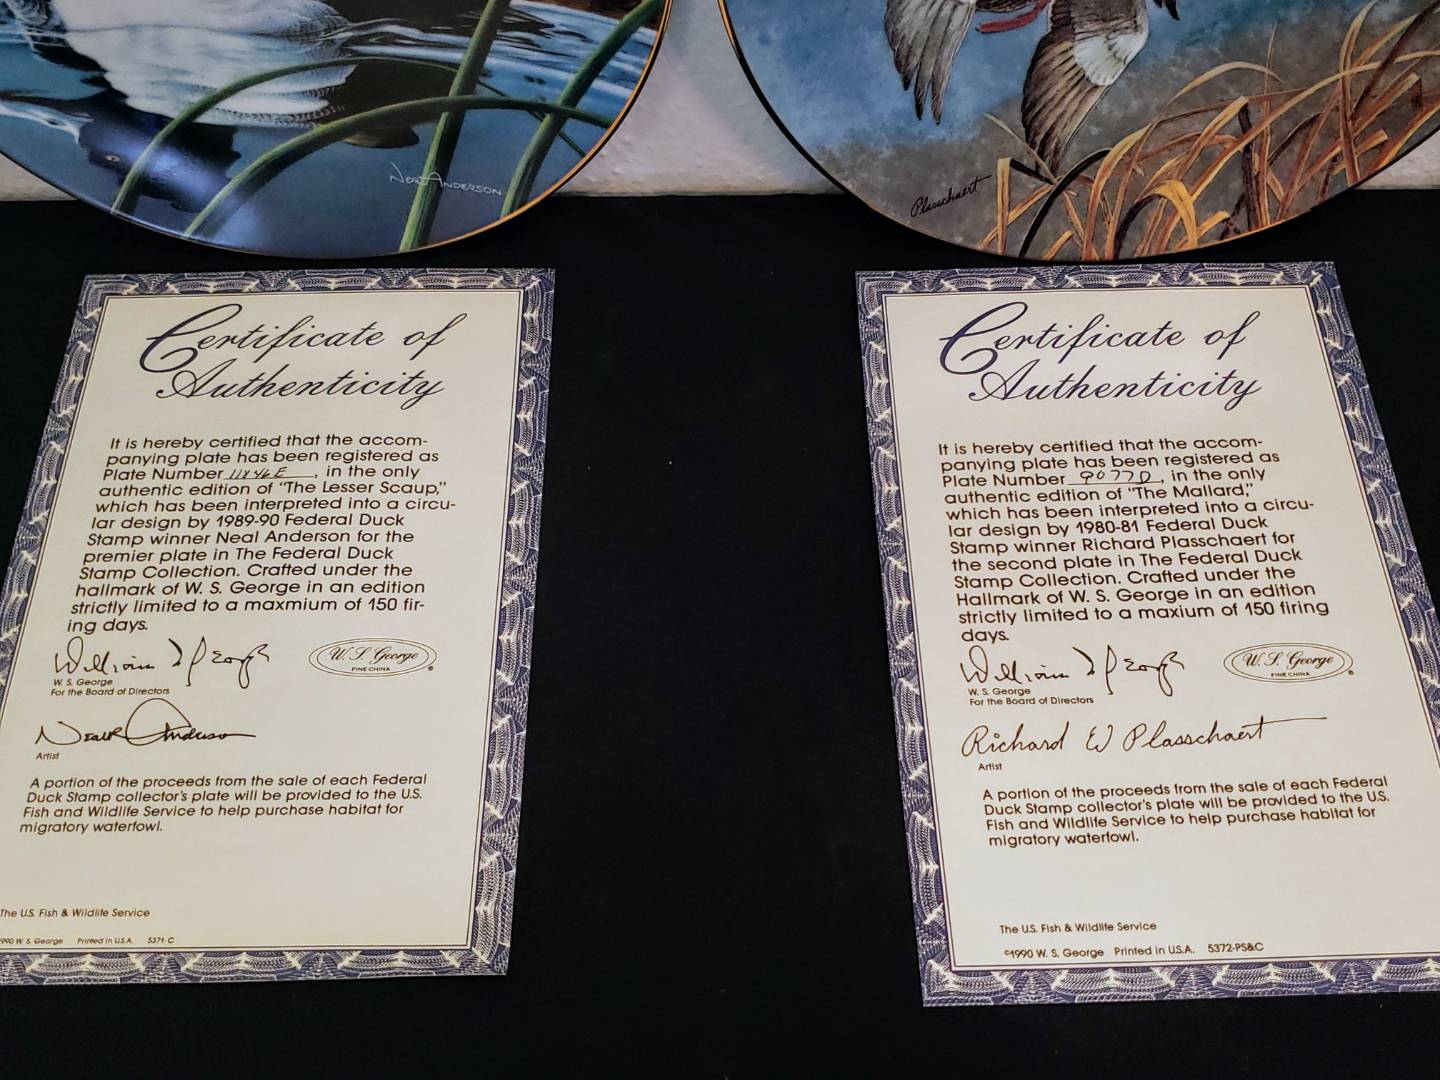 Neal Anderson
Plasschaert
Certificate of
Authenticity
It is hereby certified that the accom-
panying plate has been registered as
Plate Number 11846E, in the only
authentic edition of "The Lesser Scaup,"
which has been interpreted into a circu-
lar design by 1989-90 Federal Duck
Stamp winner Neal Anderson for the
premier plate in The Federal Duck
Stamp Collection. Crafted under the
hallmark of W. S. George in an edition
strictly limited to a maxmium of 150 fir-
ing days.
William S George
W. S. George
For the Board of Directors
W. S. George
FINE CHINA
Neal R Anderson
Artist
A portion of the proceeds from the sale of each Federal
Duck Stamp collector's plate will be provided to the U.S.
Fish and Wildlife Service to help purchase habitat for
migratory waterfowl.
The U.S. Fish & Wildlife Service
990 W. S. George Printed in U.S.A. 5371-C
Certificate of
Authenticity
It is hereby certified that the accom-
panying plate has been registered as
Plate Number 9077D, in the only
authentic edition of "The Mallard,"
which has been interpreted into a circu-
lar design by 1980-81 Federal Duck
Stamp winner Richard Plasschaert for
the second plate in The Federal Duck
Stamp Collection. Crafted under the
Hallmark of W. S. George in an edition
strictly limited to a maxium of 150 firing
days.
William S George
W. S. George
For the Board of Directors
W. S. George
FINE CHINA
Richard W Plasschaert
Artist
A portion of the proceeds from the sale of each Federal
Duck Stamp collector's plate will be provided to the U.S.
Fish and Wildlife Service to help purchase habitat for
migratory waterfowl.
The U.S. Fish & Wildlife Service
©1990 W. S. George Printed in U.S.A. 5372-PS&C